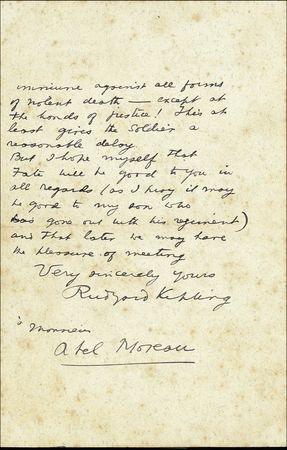 immune against all forms
of violent death — except at
the hands of justice! This at
least gives the Soldier a
reasonable delay
But I hope myself that
Fate will be good to you in
all regards (as I pray it may
be good to my son who
has gone out with his regiment)
and that later we may have
the pleasure of meeting
Very sincerely yours
Rudyard Kipling
à Monsieur
Abel Moreau